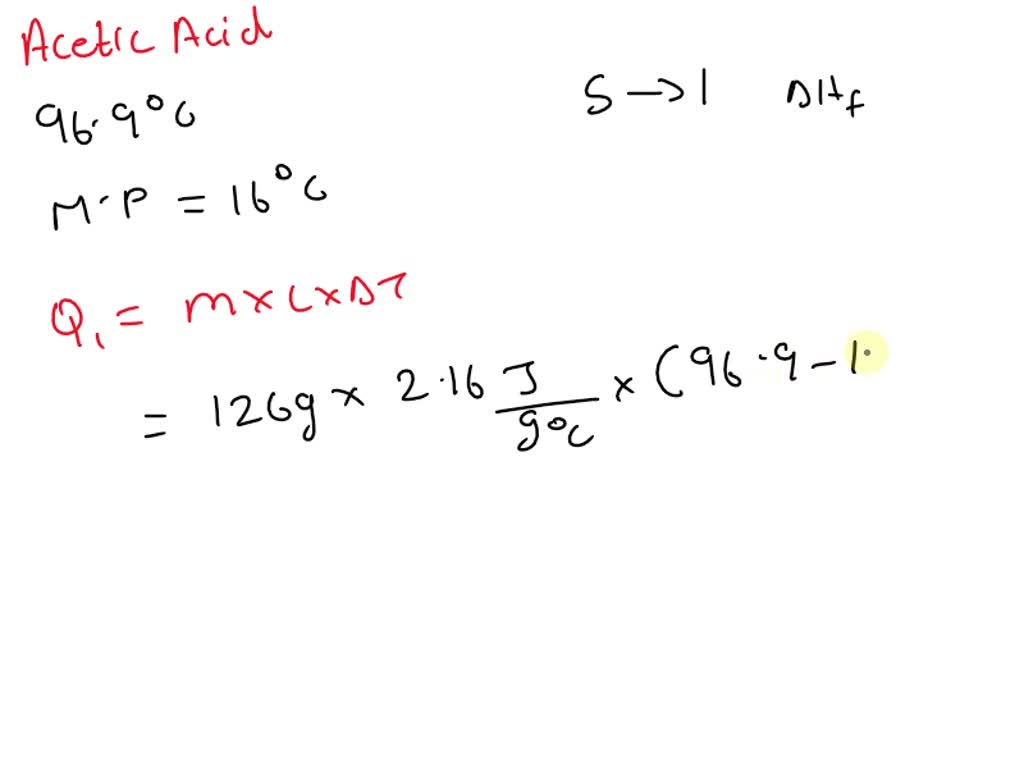 Acetic Acid
96.9°C
S → l ΔHf
M.P = 16°C
Q1 = m×C×ΔT
= 126g × 2.16 J/g°C × (96.9 - 1